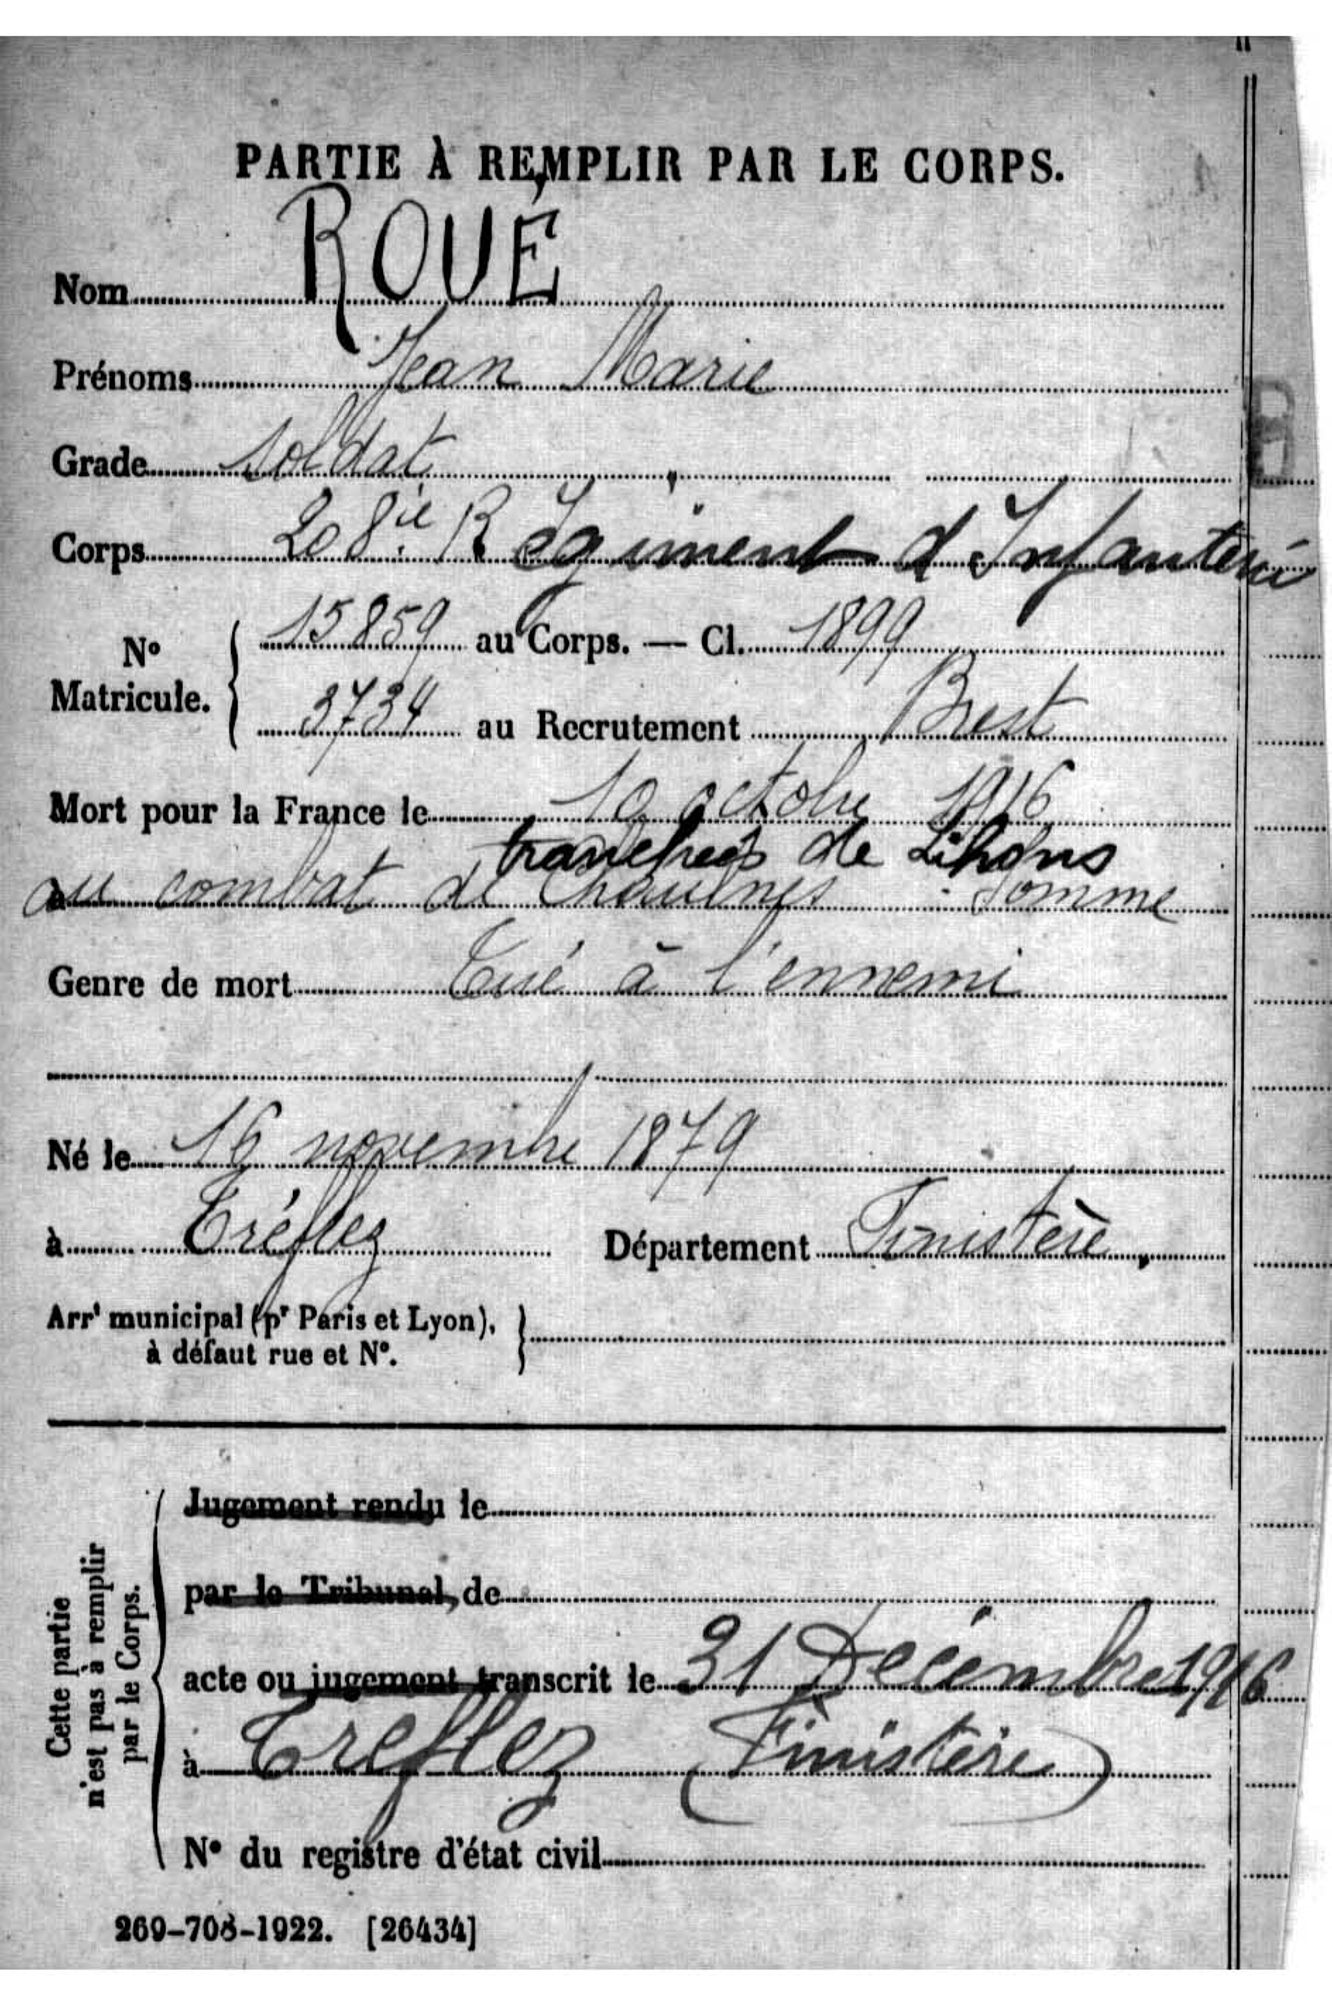 PARTIE À REMPLIR PAR LE CORPS.
Nom ROUÉ
Prénoms Jean Marie
Grade soldat
Corps 208ie Régiment d'Infanterie
No Matricule. 15859 au Corps. — Cl. 1899
3734 au Recrutement Brest
Mort pour la France le 10 octobre 1916
tranchées de Lihons
au combat de Chaulnes Somme
Genre de mort Tué à l'ennemi
Né le 16 novembre 1879
à Tréflez Département Finistère
Arrt municipal (pr Paris et Lyon),
à défaut rue et No.
Cette partie
n'est pas à remplir
par le Corps.
Jugement rendu le
par le Tribunal, de
acte ou jugement transcrit le 31 Décembre 1916
à Treflez (Finistère)
No du registre d'état civil
269-708-1922. [26434]